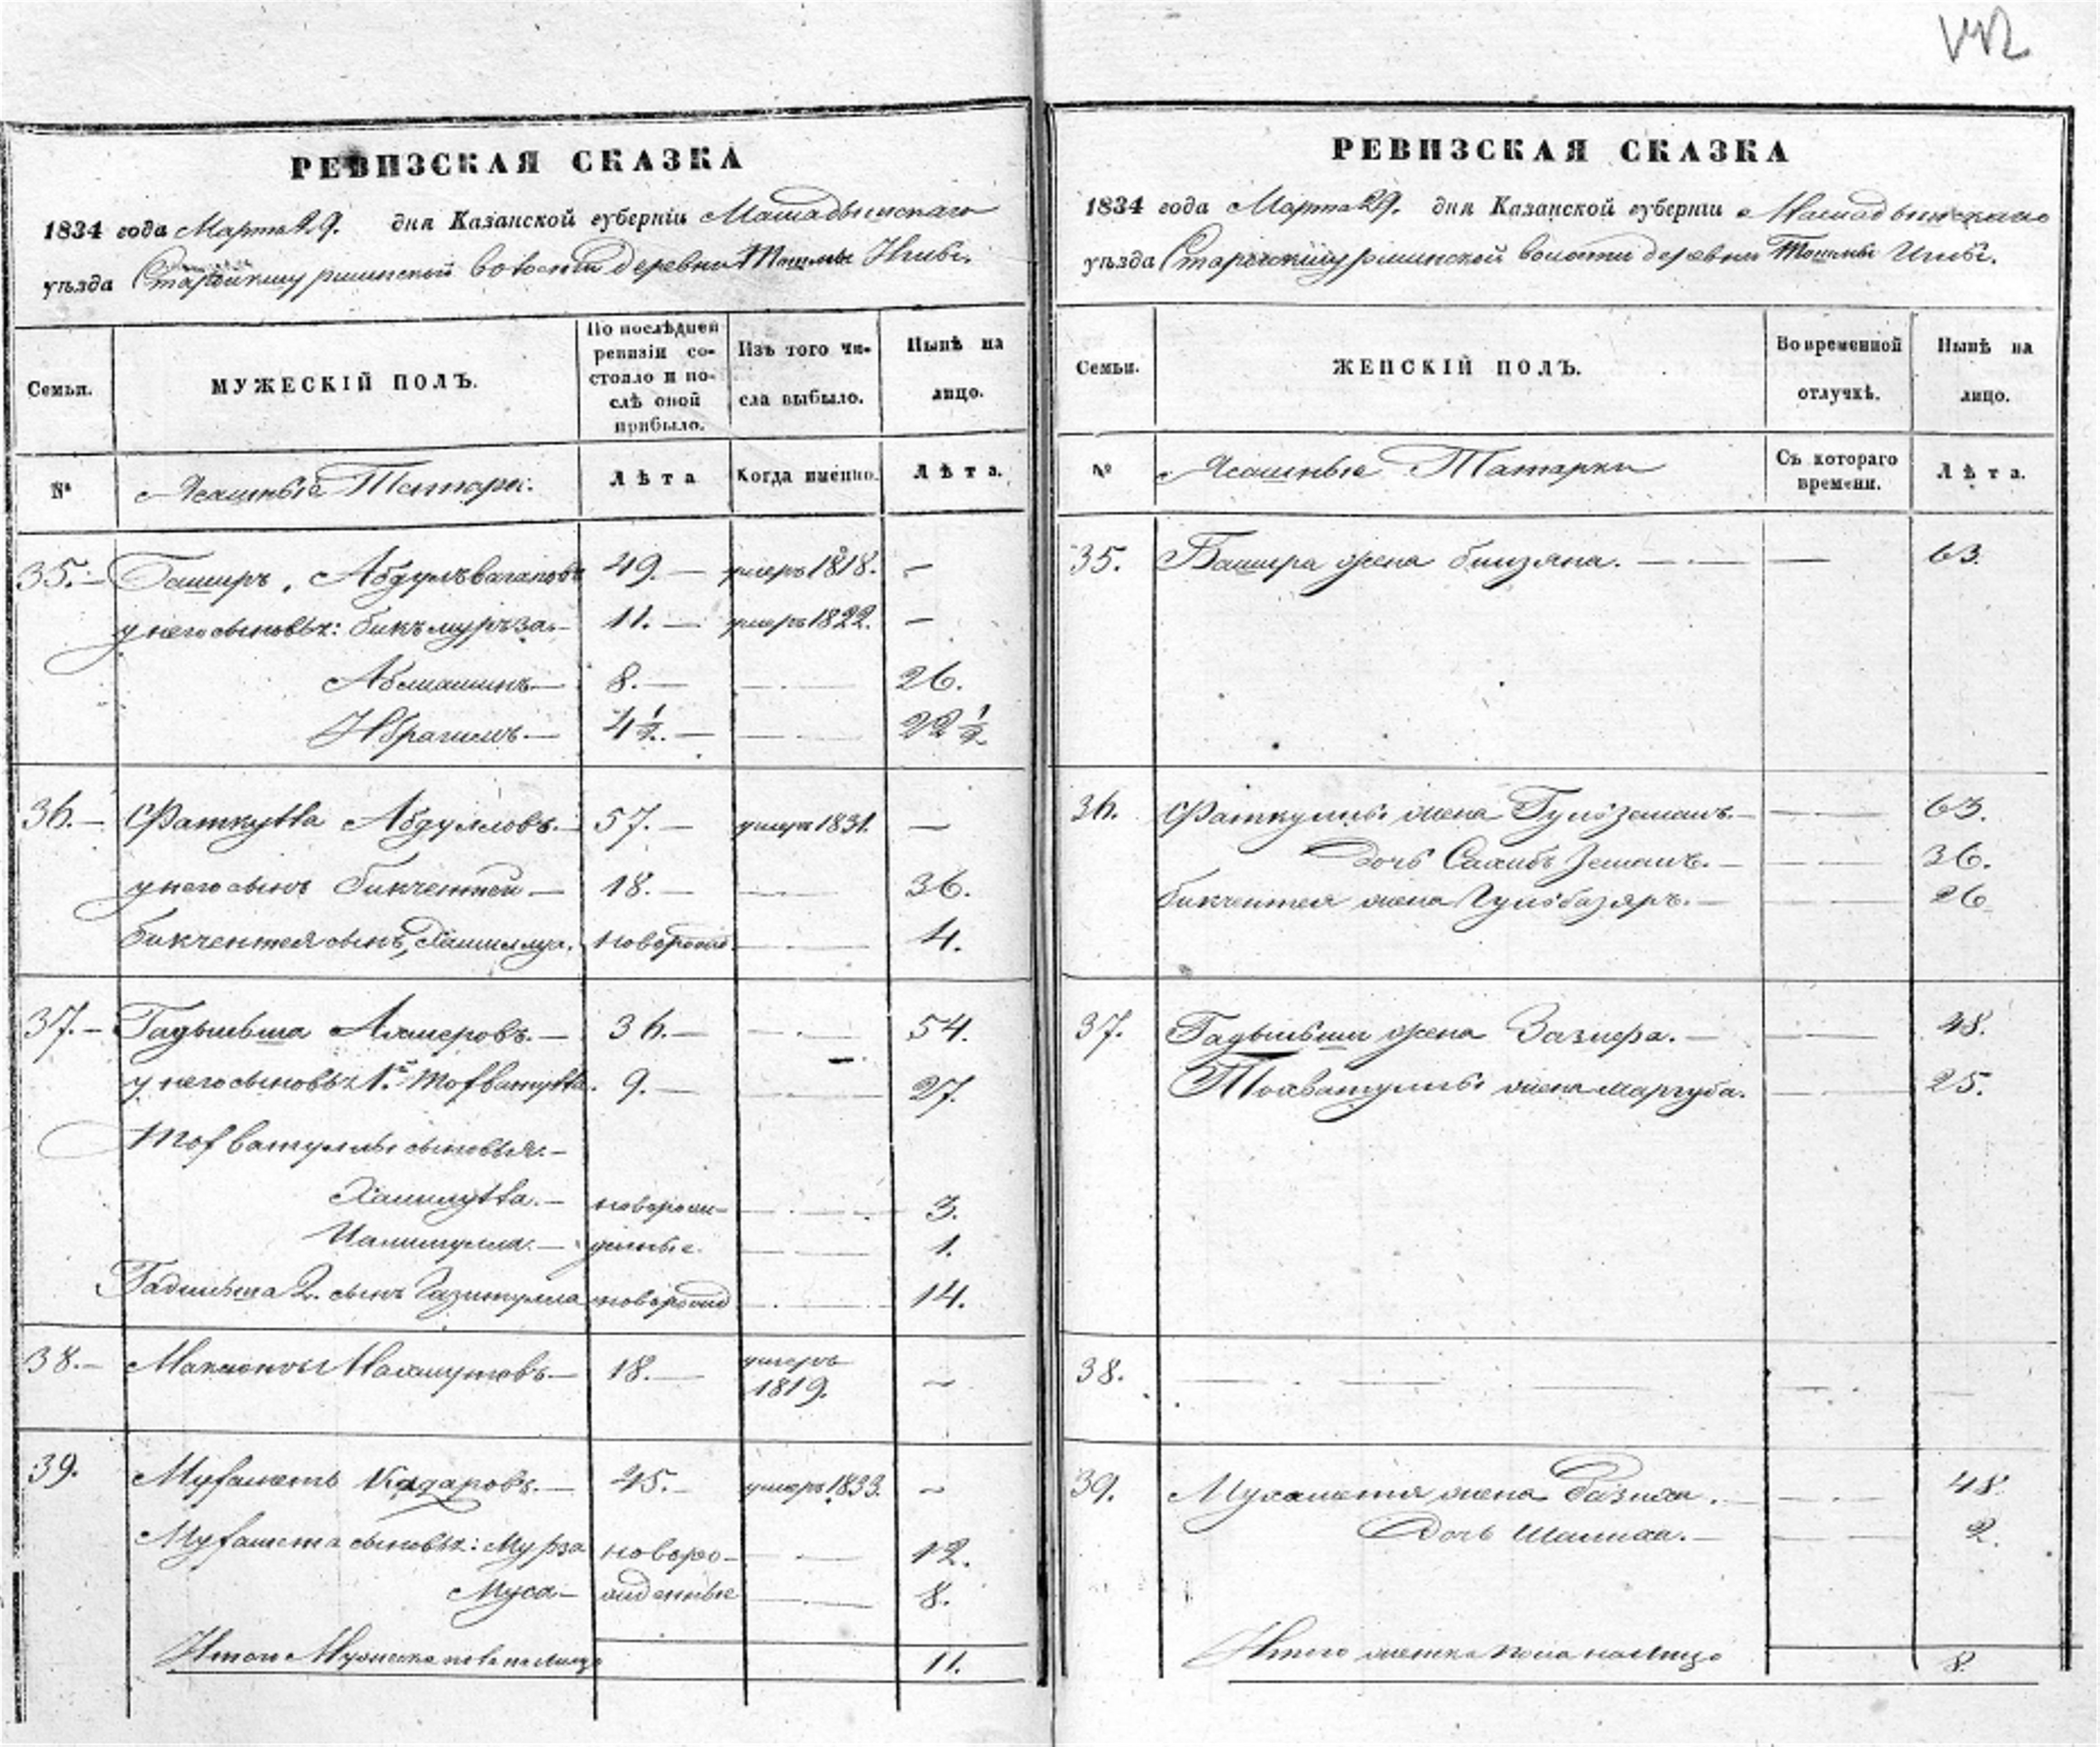 РЕВИЗСКАЯ СКАЗКА
1834 года Марта 29. дня Казанской губерніи Мамадышскаго
уѣзда волости деревни
Семьи.
МУЖЕСКІЙ ПОЛЪ.
По послѣдней ревизіи со-
стояло и по-
слѣ оной
прибыло.
Изъ того чи-
сла выбыло.
Нынѣ на
лицо.
№
Ясашныя Татары.
Лѣта
Когда именно.
Лѣта.
35. Баширъ Абдулъвагаповъ 49. умеръ 1818. —
у него сыновья: бикъмурза 11. умеръ 1822. —
8. — 26.
Ибрагимъ 4 1/2. — 22 1/2
36. Фаткулла Абдулловъ 57. умеръ 1831. —
у него сынъ Бикчентей 18. — 36.
бикчентея сынъ новорожд. — 4.
37. Гадыльша Алмеровъ 36. — 54.
у него сыновья 1й Тохватулла. 9. — 27.
Тохватуллы сыновья.
новорож- 3.
денные. 1.
2. сынъ новорожд 14.
38. Махмутовъ 18. умеръ
1819. —
39. Мухаметъ Кадаровъ. 45. умеръ 1833. —
Мухамета сыновья: Мурза новоро- 12.
Муса жденные 8.
Итого Мужеска пола на лицо 11.
РЕВИЗСКАЯ СКАЗКА
1834 года Марта 29. дня Казанской губерніи Мамадышскаго
уѣзда волости деревни
Семьи.
ЖЕНСКІЙ ПОЛЪ.
Во временной
отлучкѣ.
Нынѣ на
лицо.
№
Ясашныя Татарки
Съ котораго
времени.
Лѣта.
35. Башира жена бикзяна. — 63.
36. Фаткуллы жена Гульземалъ. — 63.
дочь — 36.
бикчентея жена Гульбазяръ. — 26
37. Гадыльши жена — 48.
Тохватуллы жена маргуба. — 25.
38. — — —
39. Мухаметя жена Разиха. — 48.
Дочь — 2.
Итого женска пола на лицо 8.